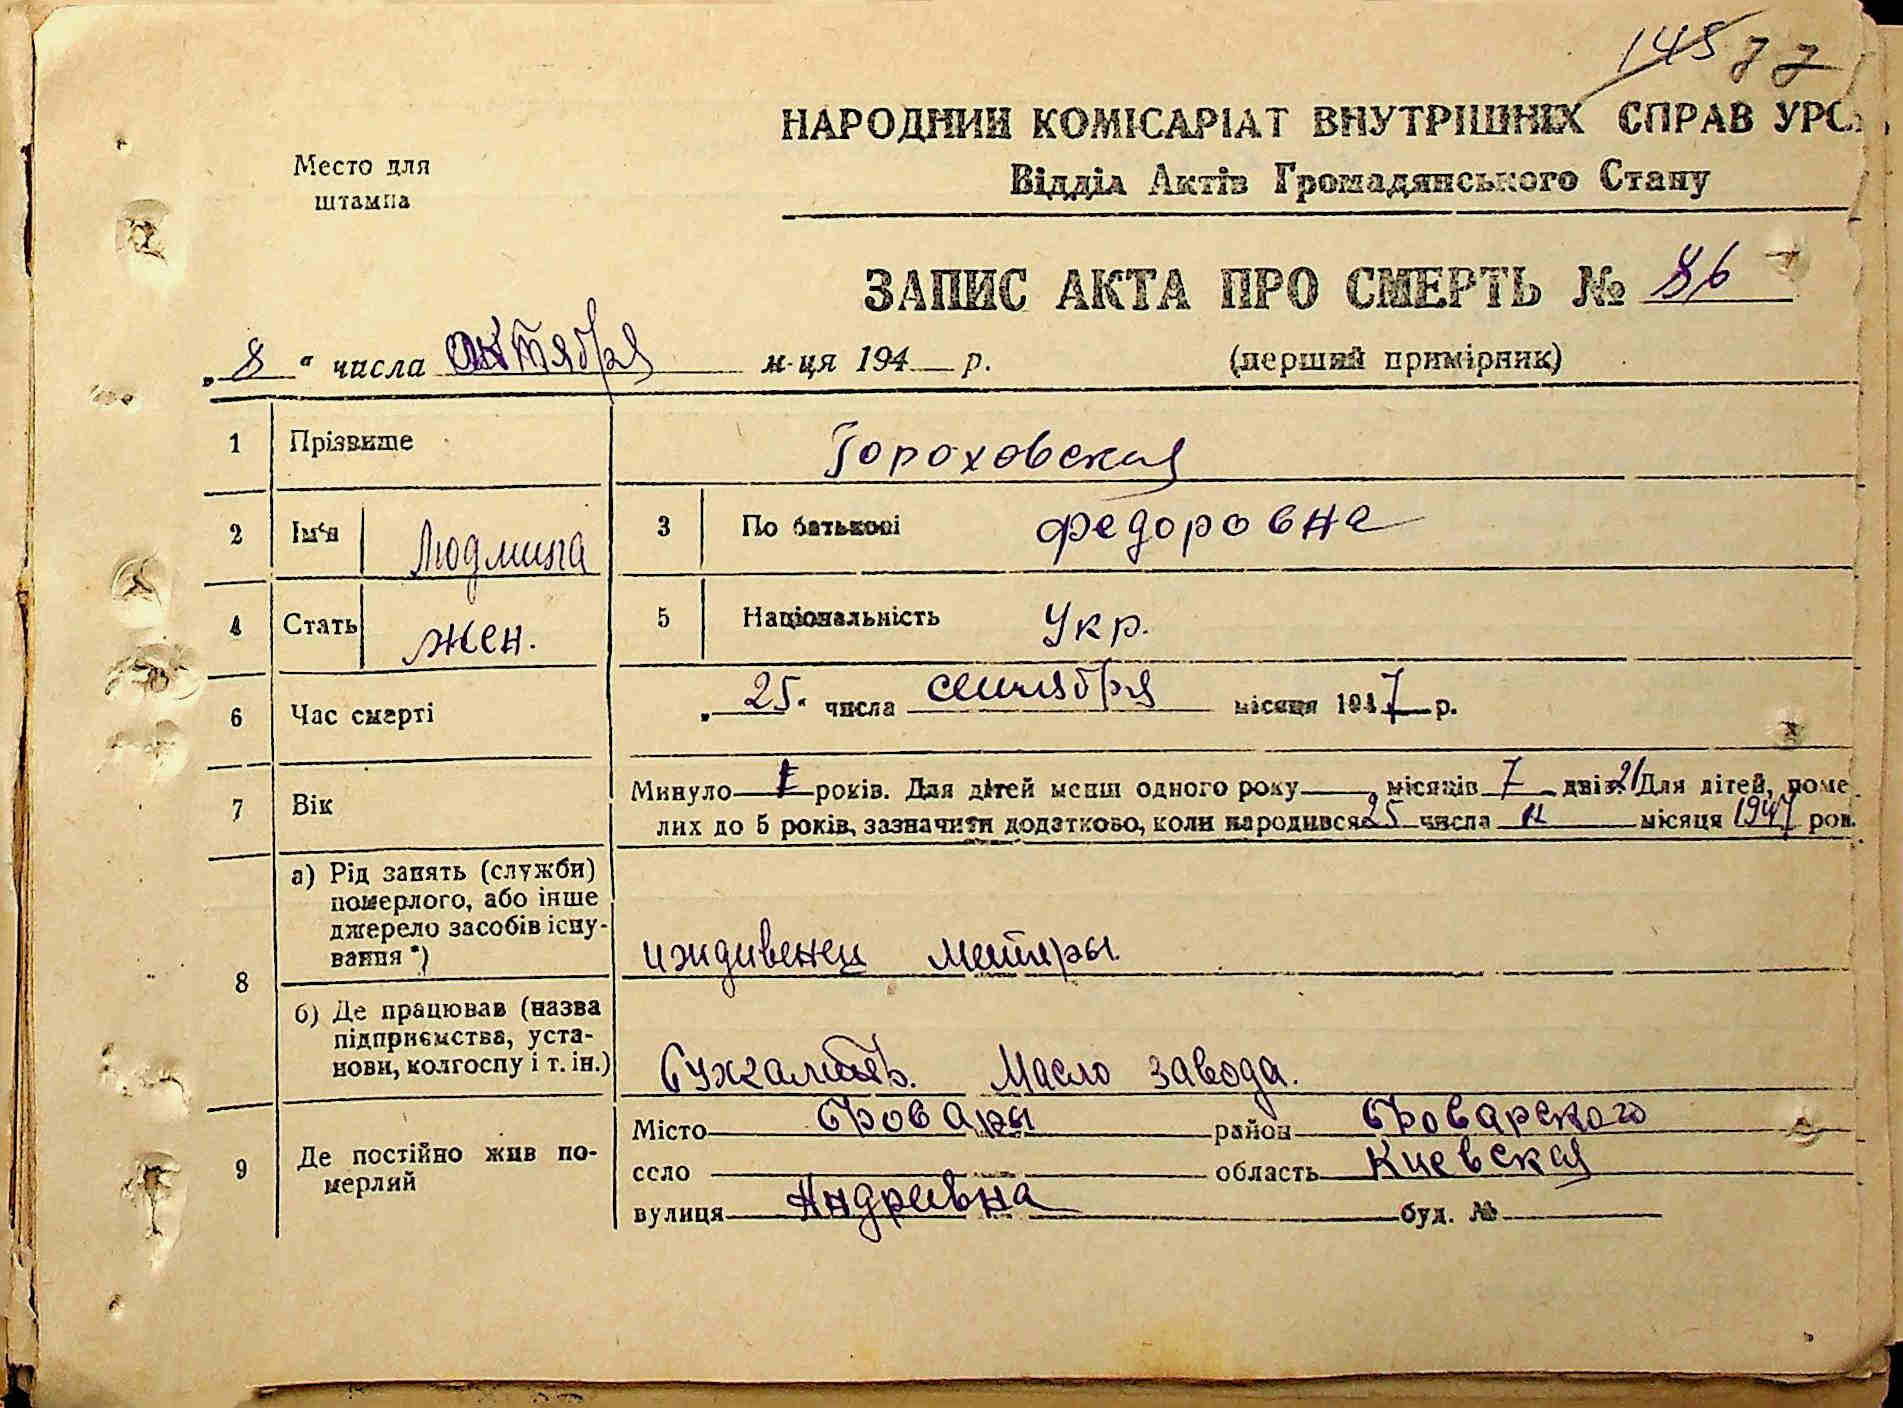 145 77
НАРОДНИЙ КОМІСАРІАТ ВНУТРІШНІХ СПРАВ УРС
Место для штампа
Відділ Актів Громадянського Стану
ЗАПИС АКТА ПРО СМЕРТЬ № 86
„8“ числа октября м-ця 194 р. (перший примірник)
1 Прізвише Гороховская
2 Ім'я Людмила 3 По батькові Федоровна
4 Стать жен. 5 Національність Укр.
6 Час смерті „25“ числа сентября місяця 1947 р.
7 Вік Минуло років. Для дітей менш одного року місяців 7 днів 21 Для дітей, поме
лих до 5 років, зазначити додатково, коли народився 25 числа II місяця 1947 рок.
8 а) Рід занять (служби)
померлого, або інше
джерело засобів існу-
вання *) иждивенец матери
б) Де працював (назва
підприємства, уста-
нови, колгоспу і т. ін.) Бухгалтер. Масло завода.
9 Де постійно жив по-
мерлий
Місто Бровары район Броварского
село область Киевская
вулиця буд. №